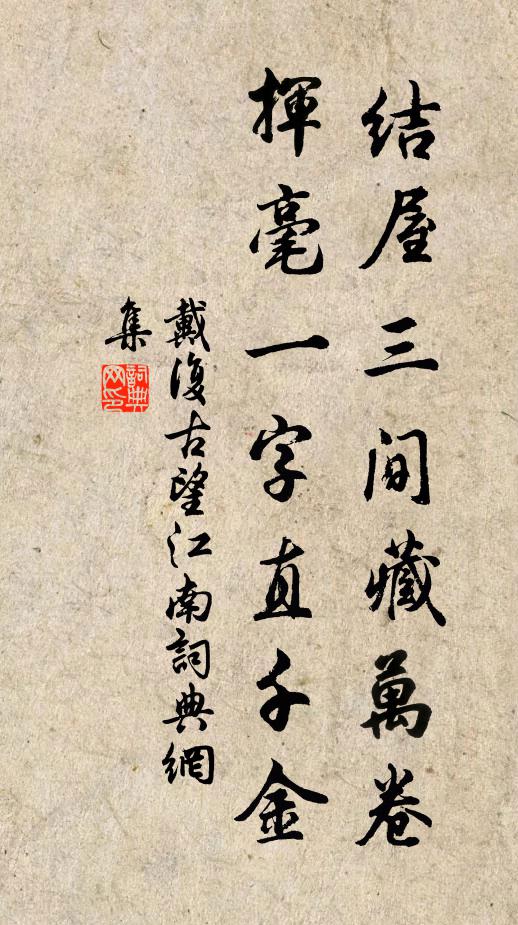 结屋三间藏萬卷
揮毫一字直千金
戴復古望江南詞典網
集
詞典
网印